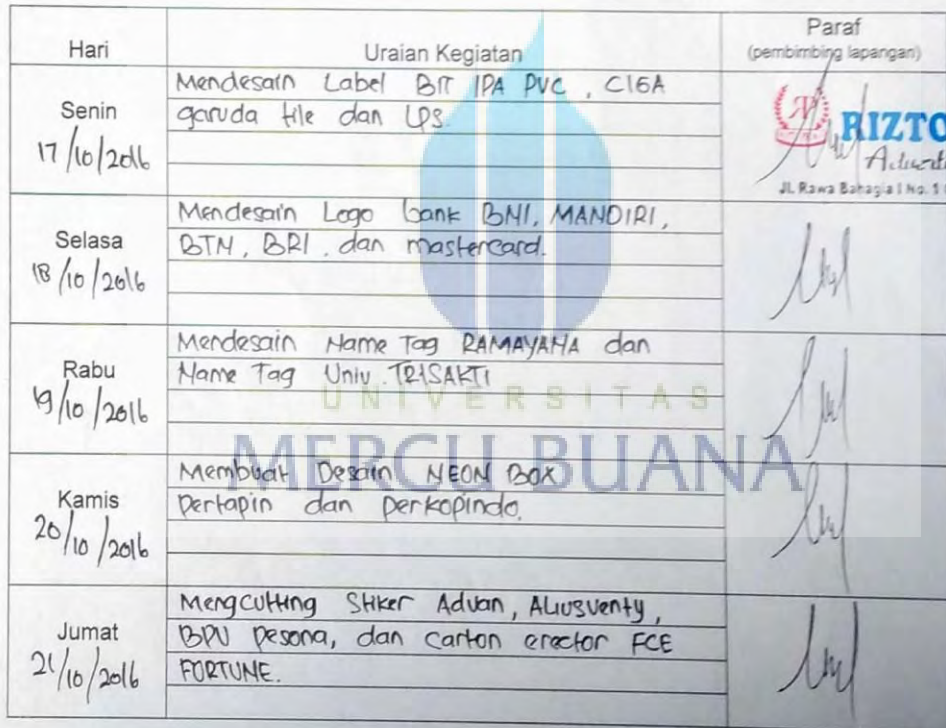 Hari Uraian Kegiatan Paraf
(pembimbing lapangan)
Senin
17/10/2016
Mendesain Label BIT IPA PVC, CIGA
garuda tile dan LPS.
RIZTO
Jl. Rawa Bahagia I No. 1
Selasa
18/10/2016
Mendesain Logo bank BNI, MANDIRI,
BTN, BRI, dan mastercard.
Rabu
19/10/2016
Mendesain Name Tag RAMAYANA dan
Name Tag Univ. TRISAKTI
UNIVERSITAS
MERCU BUANA
Kamis
20/10/2016
Membuat Desain NEON BOX
Pertapin dan perkopindo.
Jumat
21/10/2016
Mengcutting Stiker Advan, Aliusventy,
BPU pesona, dan carton erector FCE
FORTUNE.